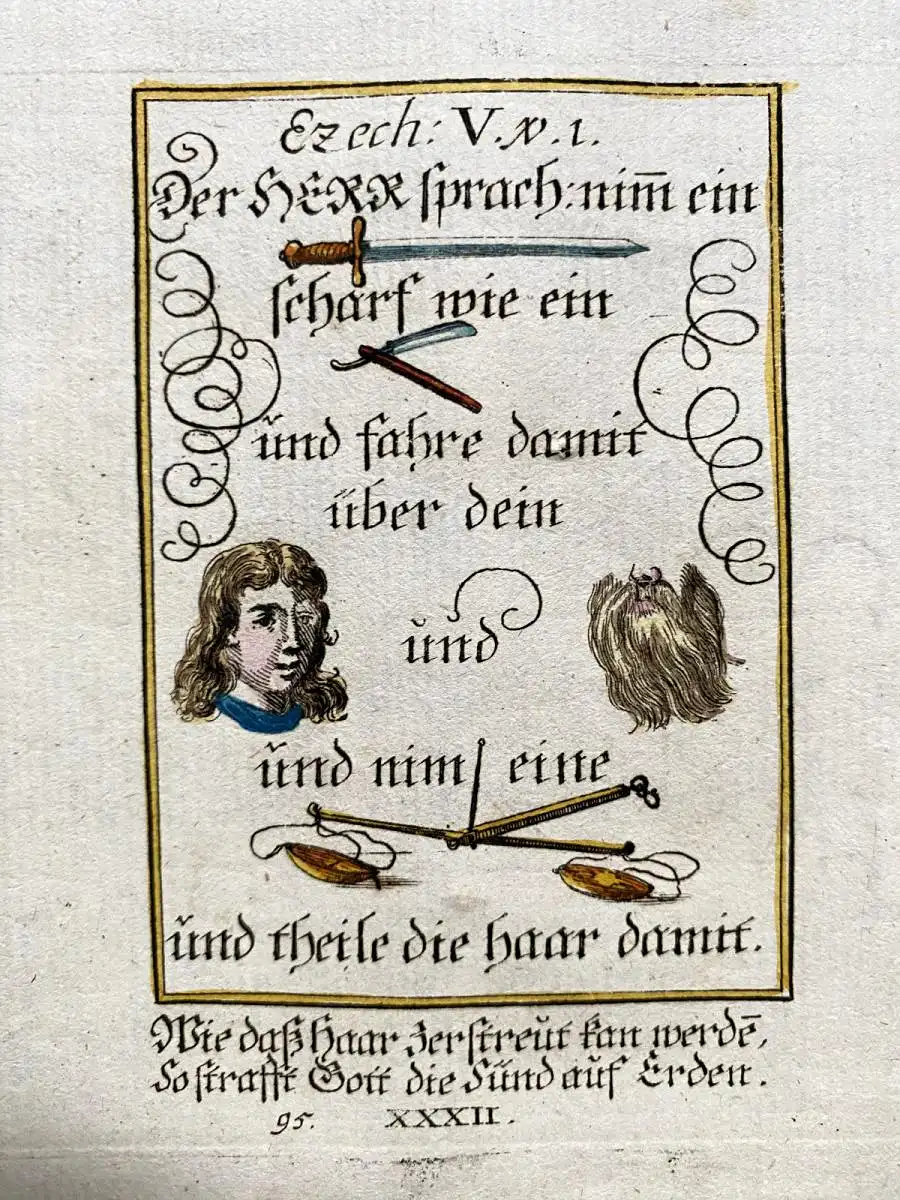 Ezech: V. v. 1.
Der HERR sprach: nim̄ ein
scharf wie ein
ŭnd fahre damit
über dein
ŭnd
ŭnd nim eine
ŭnd theile die haar damit.
Wie daß Haar zerstreŭt kan werdē,
So strafft Gott die Sünd aŭf Erden.
95. XXXII.